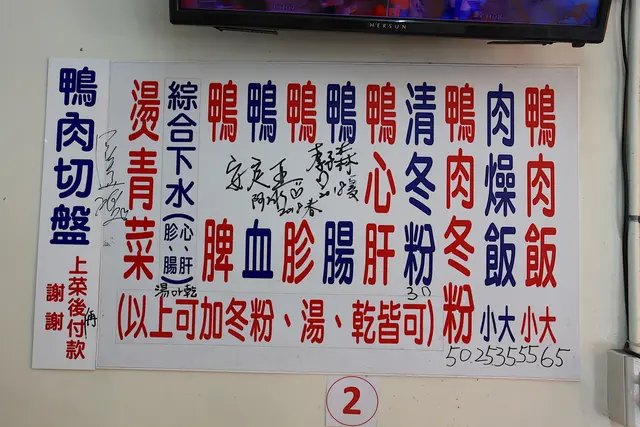 HERSUN
鴨肉飯 大 小
肉燥飯 大 小
鴨肉冬粉
清冬粉
30
50.25355565
鴨心肝
鴨腸
鴨胗
鴨血
鴨脾
綜合下水(心、肝、胗、腸)
湯or乾
燙青菜
(以上可加冬粉、湯、乾皆可)
鴨肉切盤
上菜後付款
謝謝
2018春
2